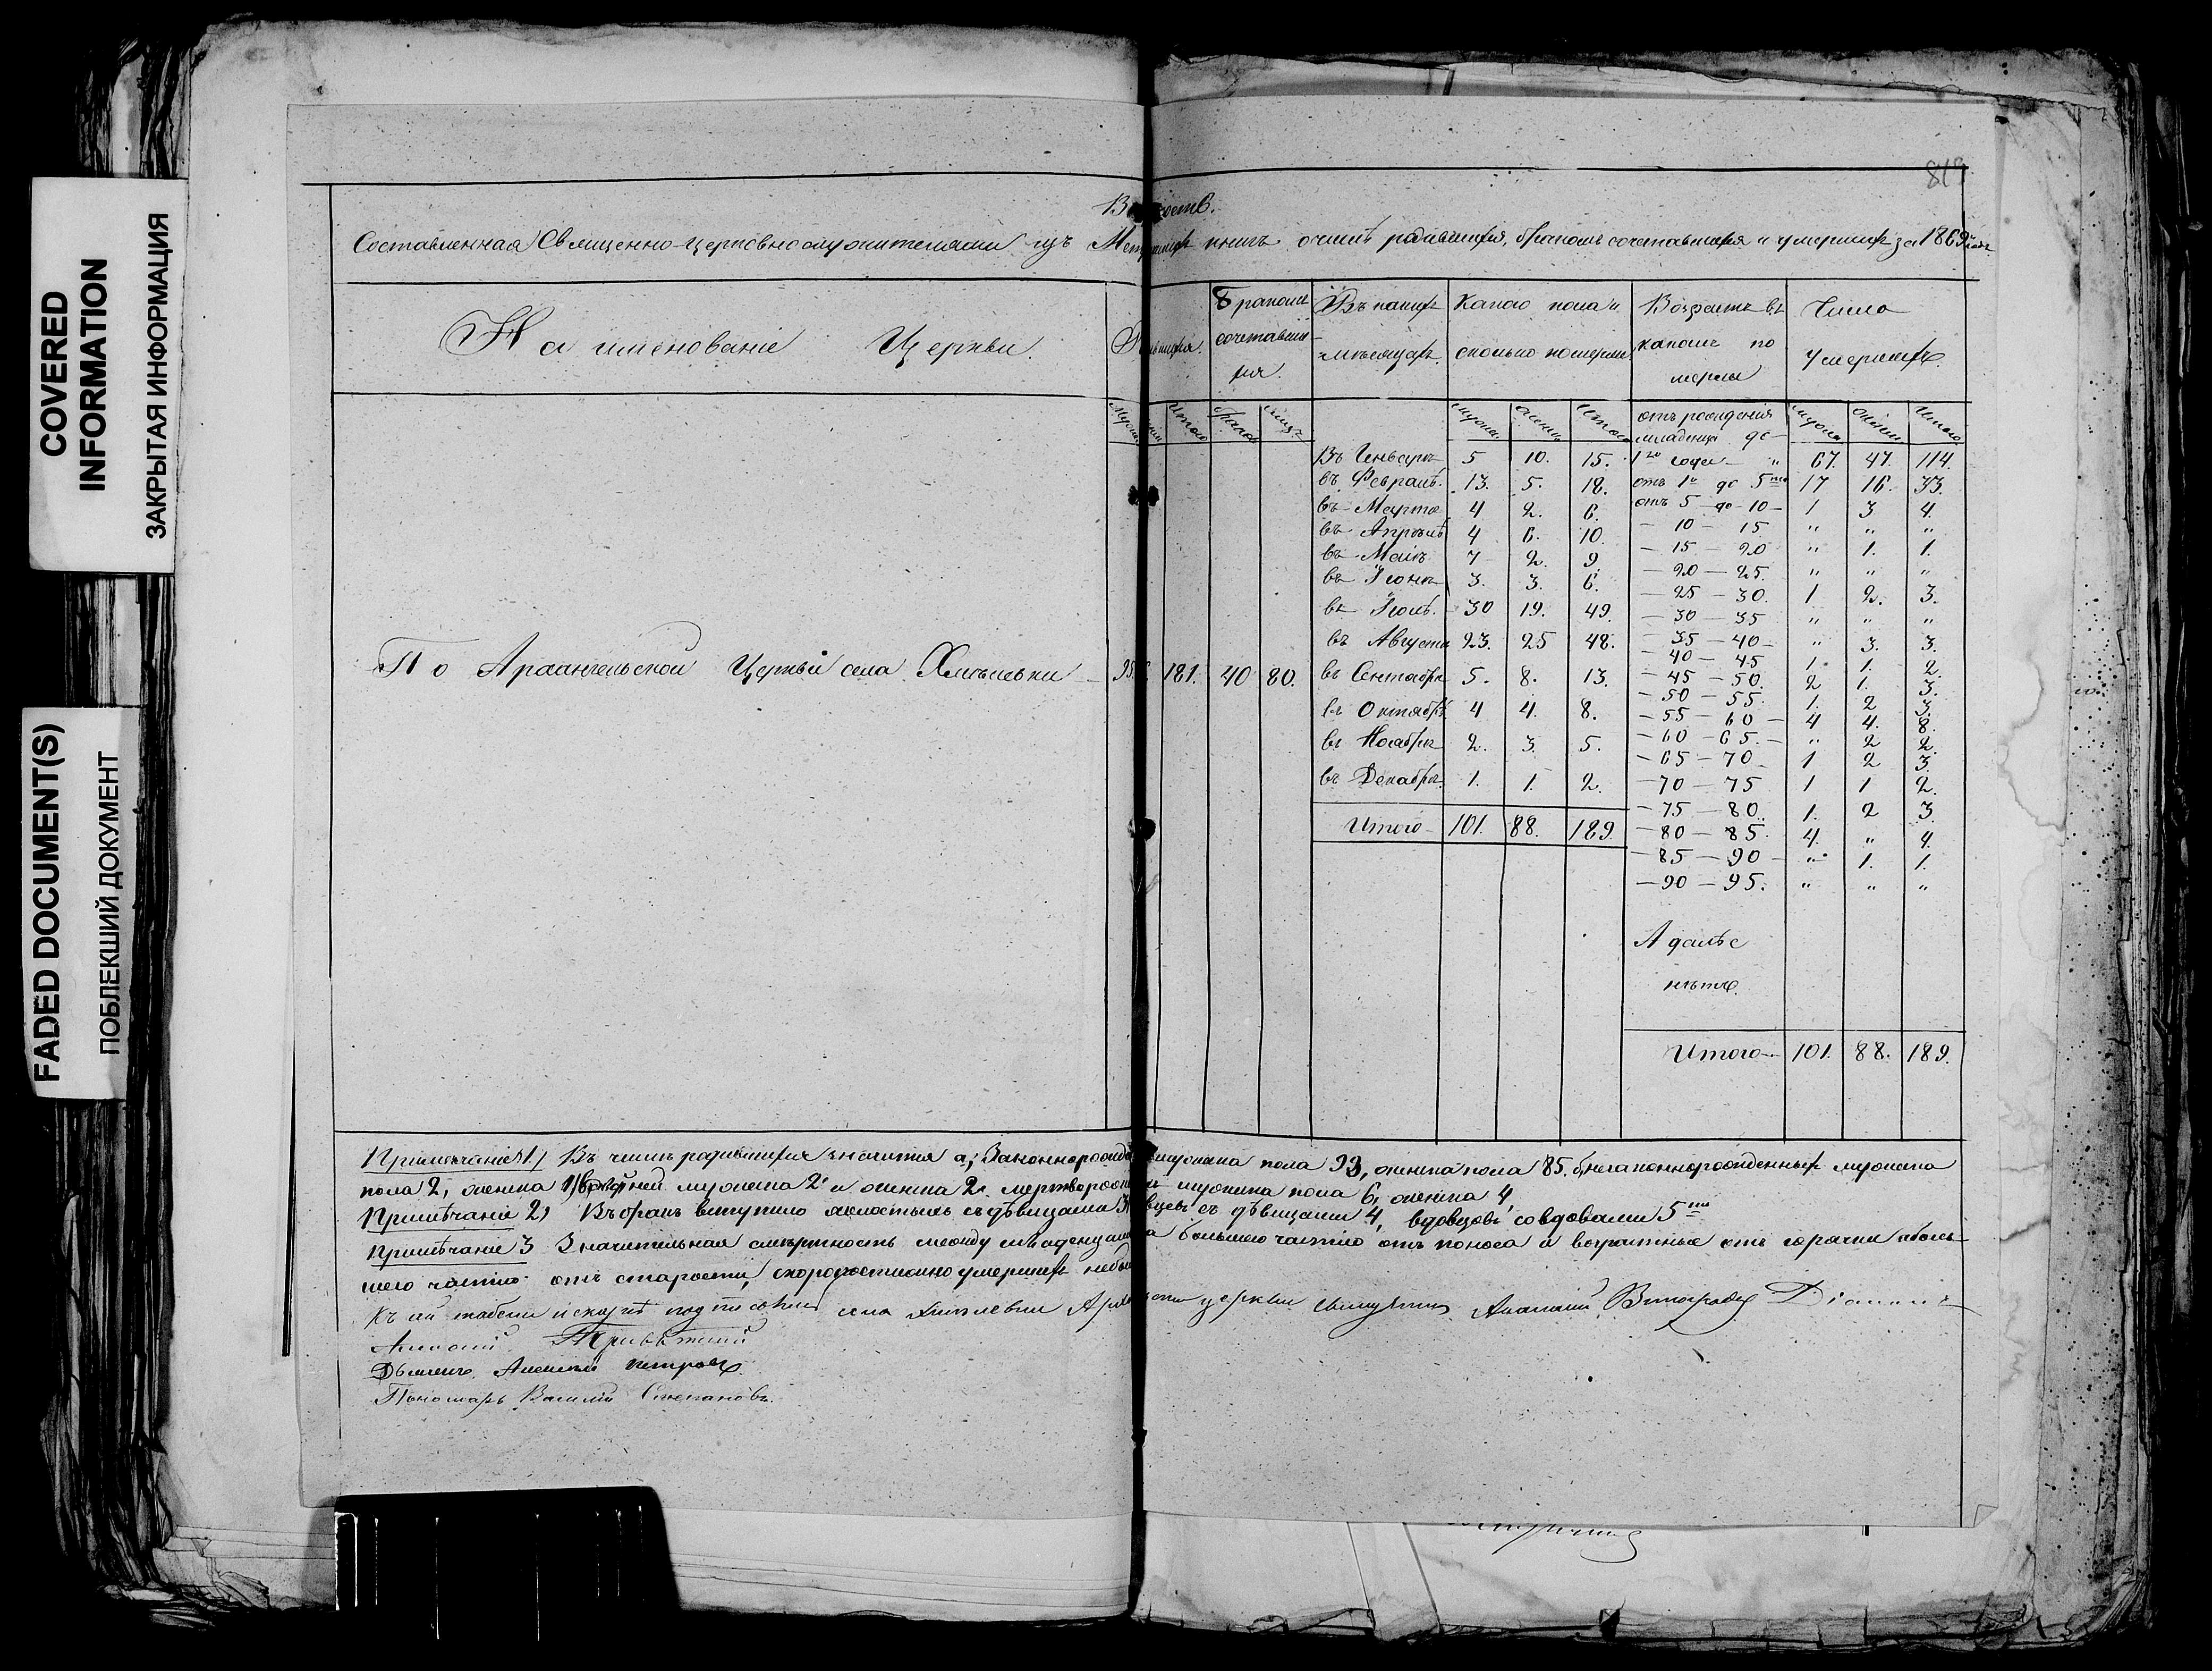 819
COVERED INFORMATION
ЗАКРЫТАЯ ИНФОРМАЦИЯ
FADED DOCUMENT(S)
ПОБЛЕКШИЙ ДОКУМЕНТ
Составленная Священно-церковнослужителями изъ книгъ о числѣ родившихся, бракомъ сочетавшихся и умершихъ за 1869
Наименованіе Церкви.
Бракомъ сочетавших-ся.
Въ какихъ мѣсяцахъ.
Какого пола и сколько померли.
Возрастъ въ какомъ померли
Число умершихъ.
Итого
Мужск. Женск. Итого
отъ рожденія младенца до
Мужск. Женск. Итого
Въ Генварѣ 5 10. 15. 1го года — " 67. 47. 114.
въ Февралѣ. 13. 5. 18. отъ 1го до 5ти 17 16. 33.
въ Мартѣ 4 2. 6. отъ 5 до 10 1 3 4.
въ Апрѣлѣ 4 6. 10. — 10 — 15 " " "
въ Маіѣ 7 2. 9. — 15 — 20 " 1. 1.
въ Іюнѣ 3. 3. 6. — 20 — 25. " " "
— 25 — 30. 1 2. 3.
въ Іюлѣ. 30 19. 49. — 30 — 35 " " "
въ Августѣ 23. 25 48. — 35 — 40 — " 3. 3.
— 40 — 45 1. 1. 2.
По Архангельской Церкви села Хмѣлевки — 95. 181. 40 80. въ Сентябрѣ 5. 8. 13. — 45 — 50. 2 1. 3.
— 50 — 55. 1. 2 3.
въ Октябрѣ 4 4. 8. — 55 — 60 — 4 4. 8.
въ Ноябрѣ 2. 3 5. — 60 — 65. — " 2 2.
— 65 — 70 — 1 2 3.
въ Декабрѣ. 1. 1. 2. — 70 — 75 1 1 2.
— 75 — 80. 1. 2 3.
Итого — 101. 88. 189. — 80 — 85. 4. " 4.
— 85 — 90 — " 1. 1.
— 90 — 95. " " "
А далѣе
нѣтъ.
Итого — 101. 88. 189.
Примечаніе 1) Въ числѣ родившихся значится а) мужска пола 93, женска пола 85. б) незаконнорожденныхъ мужска
пола 2, женска 1, мужска 2 и женска 2. мужска пола 6, женска 4,
Примѣчаніе 2) Въ бракъ вступило холостыхъ съ дѣвицами съ дѣвицами 4, вдовцовъ со вдовами 5
Примѣчаніе 3 Значительная смертность между младенцами большею частію отъ поноса и возрастные отъ горячки а боль-
шею частію отъ старости, скоропостижно умершихъ
Къ сей табели села Хмѣлевки церкви Священникъ Виноградовъ Діаконъ
Дьячекъ Алексѣй Петровъ.
Пономарь Василій Степановъ.